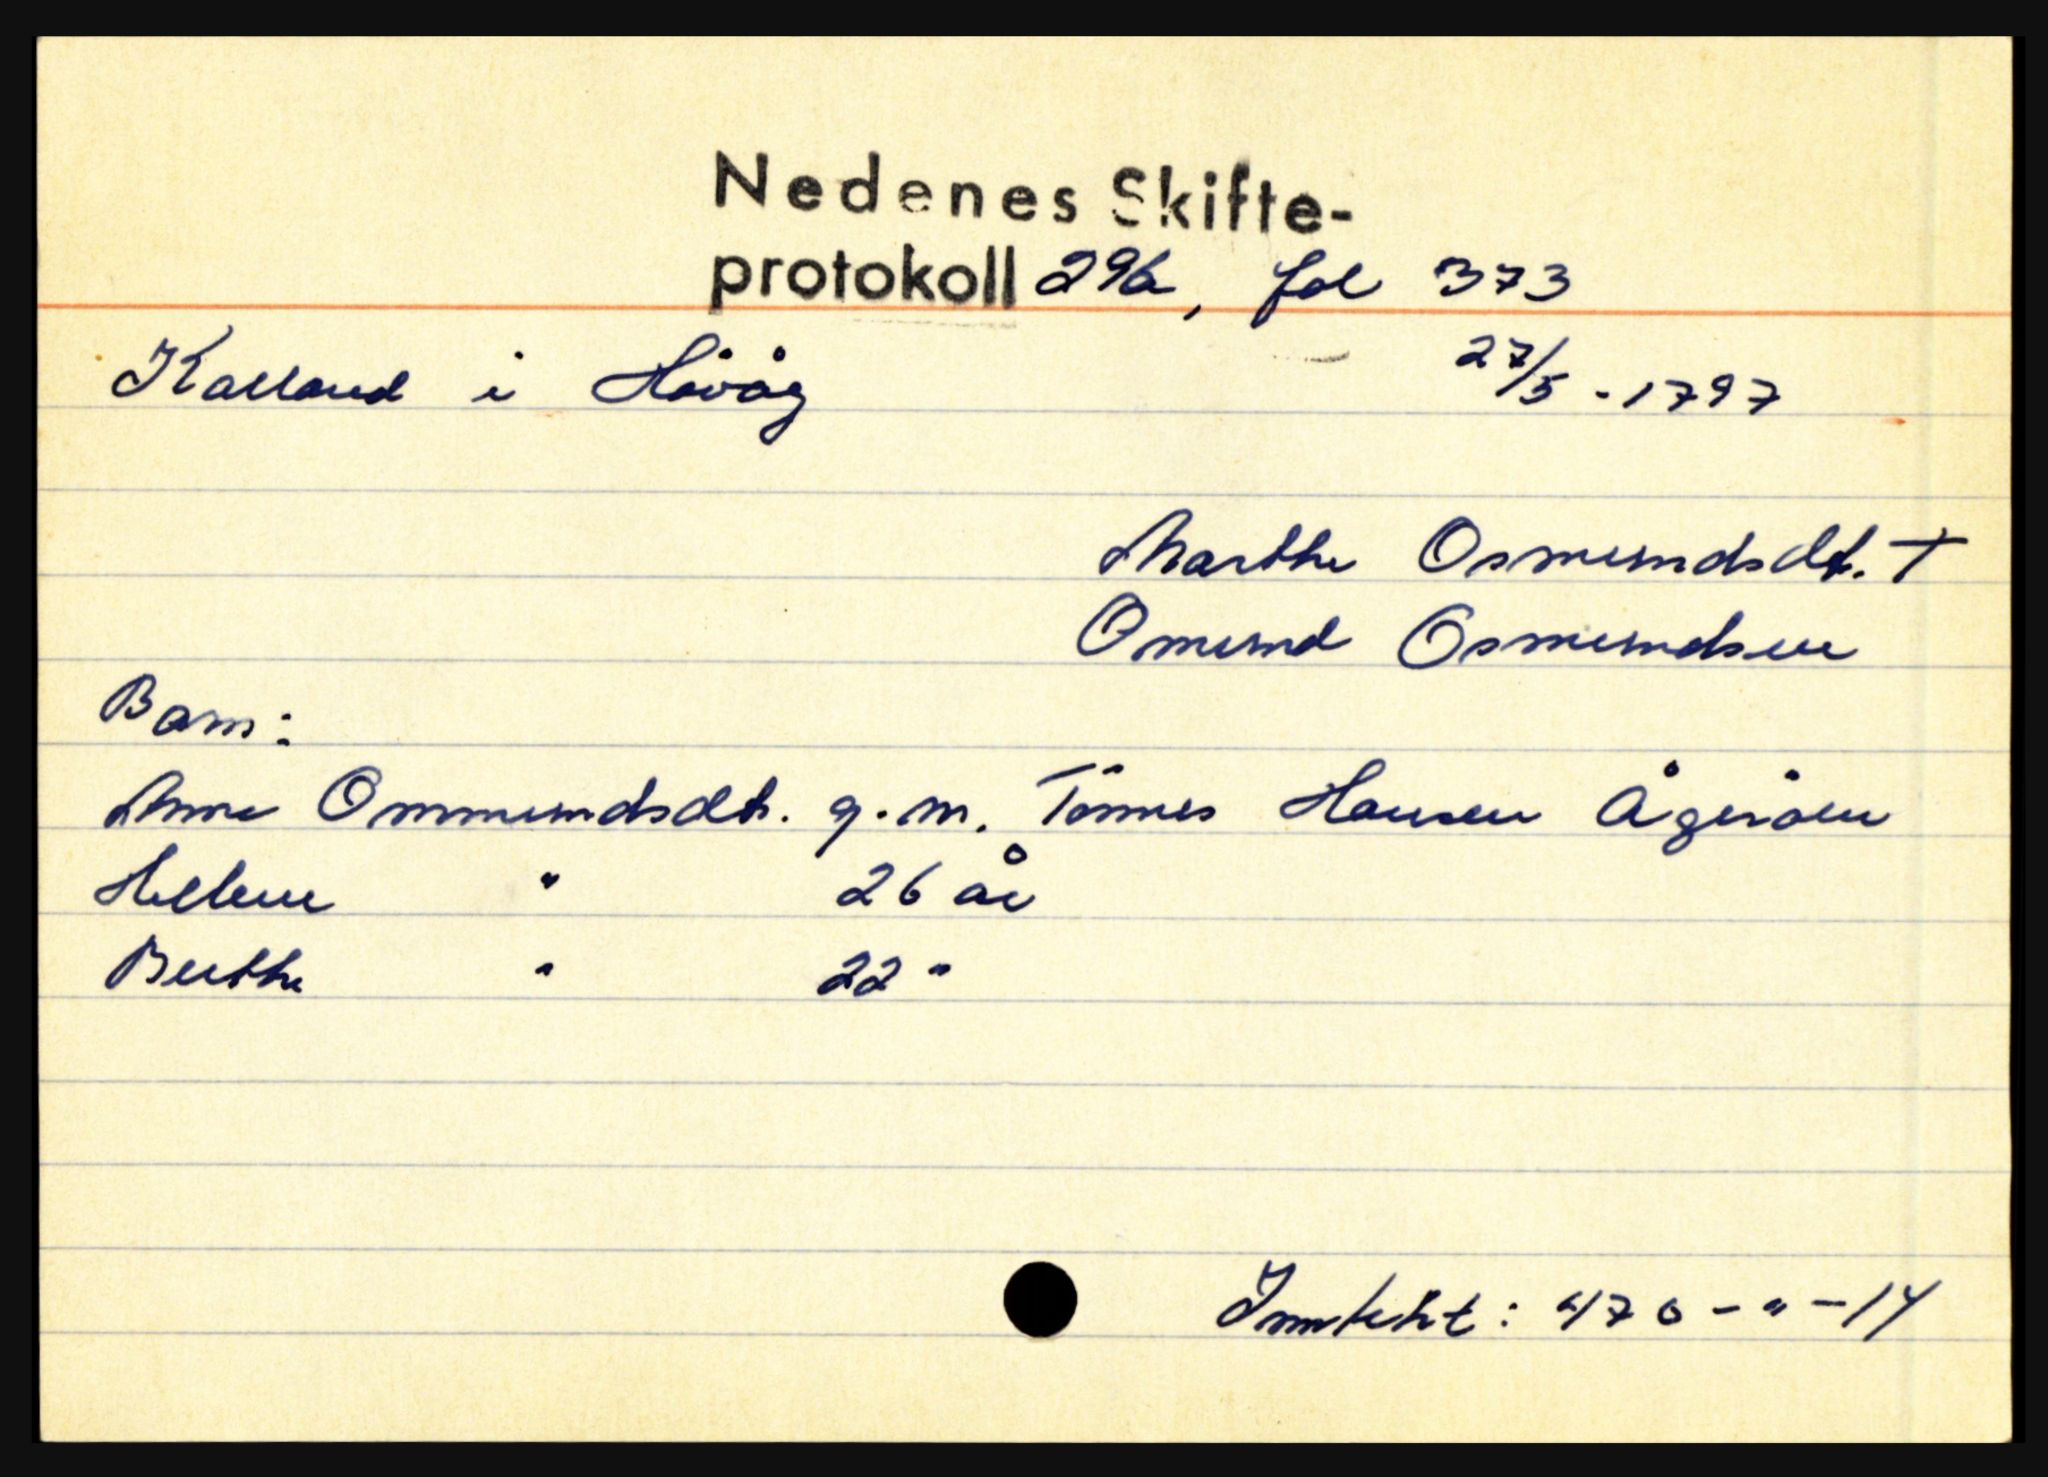 Nedenes Skifte-
protokoll 29b, fol 373
Kalland i Høvåg 27/5 - 1797
Marthe Osmundsdt. †
Omund Osmundsen
Barn:
Anne Ommundsdt. g.m. Tönnes Hansen Ågeröen
Helene " 26 år
Berthe " 22 "
Inntekt: 470 - " - 14